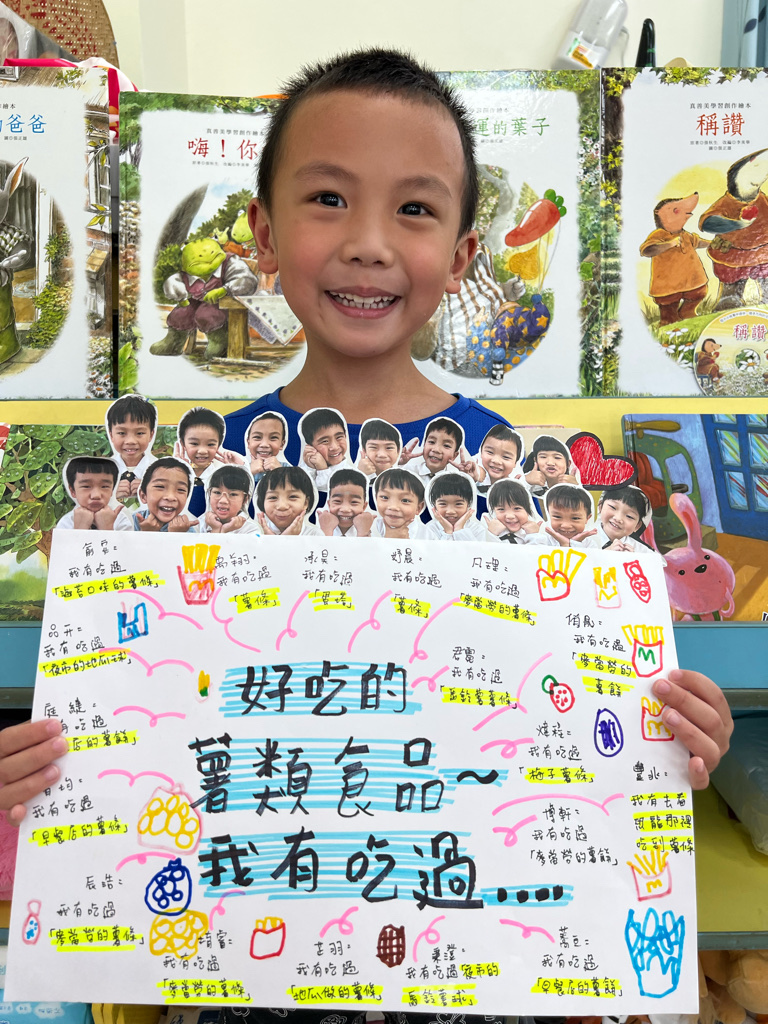 真善美學習創作繪本
的爸爸
真善美學習創作繪本
嗨！你
運的葉子
真善美學習創作繪本
稱讚
稱讚
我有吃過
「海苔口味的薯條」
我有吃過
「薯條」
我有吃過
我有吃過
「薯條」
凡理:
我有吃過
「麥當勞的薯條」
品开:
我有吃過
「夜市的地瓜球」
君霏:
我有吃過
「馬鈴薯薯條」
我有吃過
「麥當勞的
薯餅」
店的薯餅」
我有吃過
「梅子薯條」
我有吃過
「早餐店的薯條」
博軒:
我有吃過
「麥當勞的薯餅」
豐兆:
我有去看
恐龍那裡
吃到薯條
好吃的
薯類食品~
我有吃過....
辰浩:
我有吃過
「麥當勞的薯條」
我有吃過
「麥當勞的薯條」
芷羽:
我有吃過
「地瓜做的薯條」
秉澄:
我有吃過夜市的
馬鈴薯球」
我有吃過
「早餐店的薯餅」